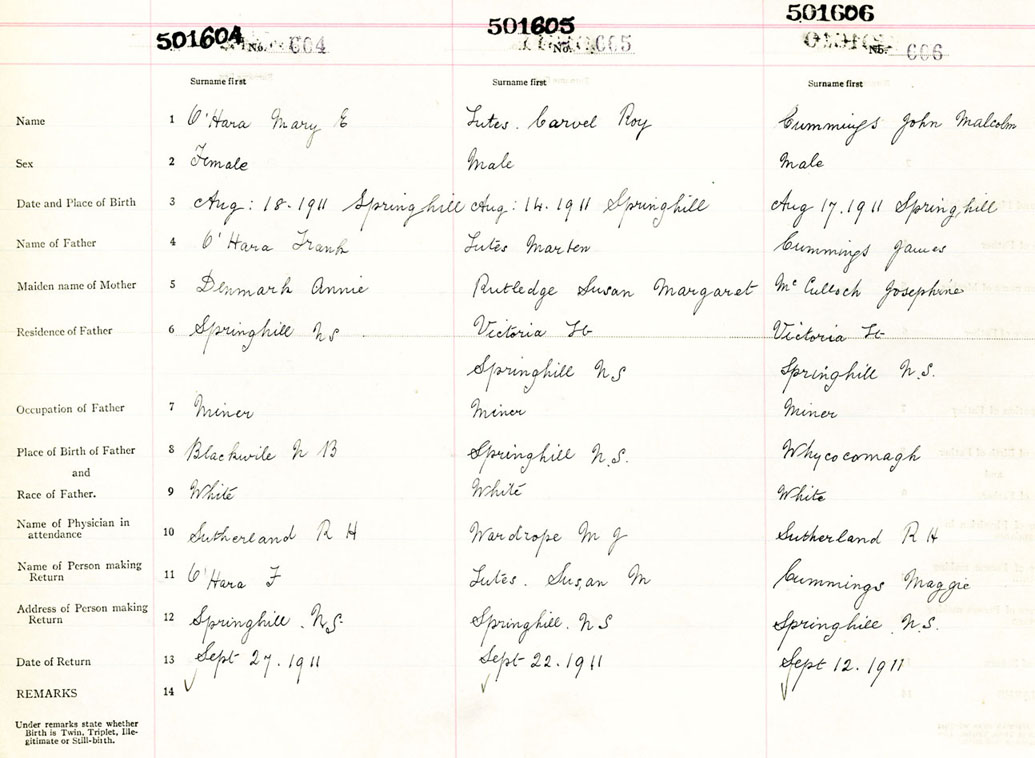 501604 501605 501606
No. 604 No. 605 No. 606
Surname first Surname first Surname first
Name 1 O'Hara Mary E Lutes. Carvel Roy Cummings John Malcolm
Sex 2 Female Male Male
Date and Place of Birth 3 Aug: 18. 1911 Springhill Aug: 14. 1911 Springhill Aug 17. 1911 Springhill
Name of Father 4 O'Hara Frank Lutes Marten Cummings James
Maiden name of Mother 5 Denmark Annie Rutledge Susan Margaret Mc Culloch Josephine
Residence of Father 6 Springhill NS Victoria St Victoria St
Springhill N.S Springhill N.S.
Occupation of Father 7 Miner Miner Miner
Place of Birth of Father 8 Blackvile N B Springhill N.S. Whycocomagh
and
Race of Father. 9 White White White
Name of Physician in
attendance 10 Sutherland R H Wardrope M J Sutherland R H
Name of Person making
Return 11 O'Hara F Lutes. Susan M Cummings Maggie
Address of Person making
Return 12 Springhill. N.S. Springhill. N S Springhill. N.S.
Date of Return 13 Sept 27. 1911 Sept 22. 1911 Sept 12. 1911
REMARKS 14
Under remarks state whether
Birth is Twin, Triplet, Ille-
gitimate or Still-birth.